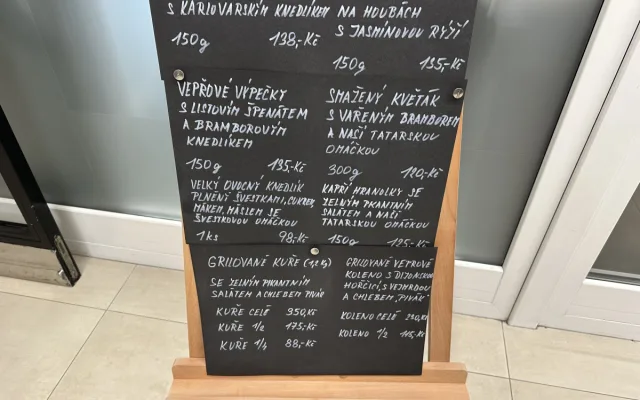 S KARLOVARSKÝM KNEDLÍKEM NA HOUBÁCH
150g 138,-Kč
S JASMÍNOVOU RÝŽÍ
150g 135,-Kč
VEPŘOVÉ VÝPEČKY
S LISTOVÝM ŠPENÁTEM
A BRAMBOROVÝM
KNEDLÍKEM
150g 135,-Kč
SMAŽENÝ KVĚTÁK
S VAŘENÝM BRAMBOREM
A NAŠÍ TATARSKOU
OMÁČKOU
300g 120,-Kč
VELKÝ OVOCNÝ KNEDLÍK
PLNĚNÝ ŠVESTKAMI, CUKREM,
MÁKEM, MÁSLEM SE
ŠVESTKOVOU OMÁČKOU
1ks 98,-Kč
KAPŘÍ HRANOLKY SE
ZELNÝM PIKANTNÍM
SALÁTEM A NAŠÍ
TATARSKOU OMÁČKOU
150g 125,-Kč
GRILOVANÉ KUŘE
SE ZELNÝM PIKANTNÍM
SALÁTEM A CHLEBEM
KUŘE CELÉ 350,Kč
KUŘE 1/2 175,-Kč
KUŘE 1/4 88,-Kč
GRILOVANÉ VEPŘOVÉ
KOLENO S DIJONSKOU
HOŘČICÍ, S
A CHLEBEM,
KOLENO CELÉ
KOLENO 1/2